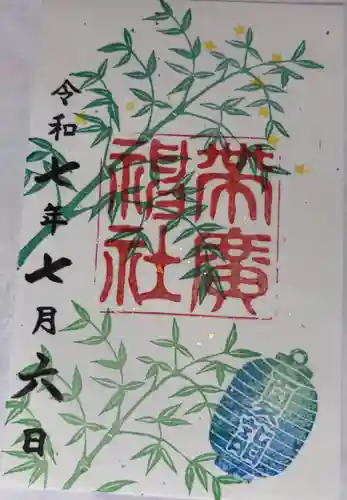 帯廣
神社
令和七年七月六日